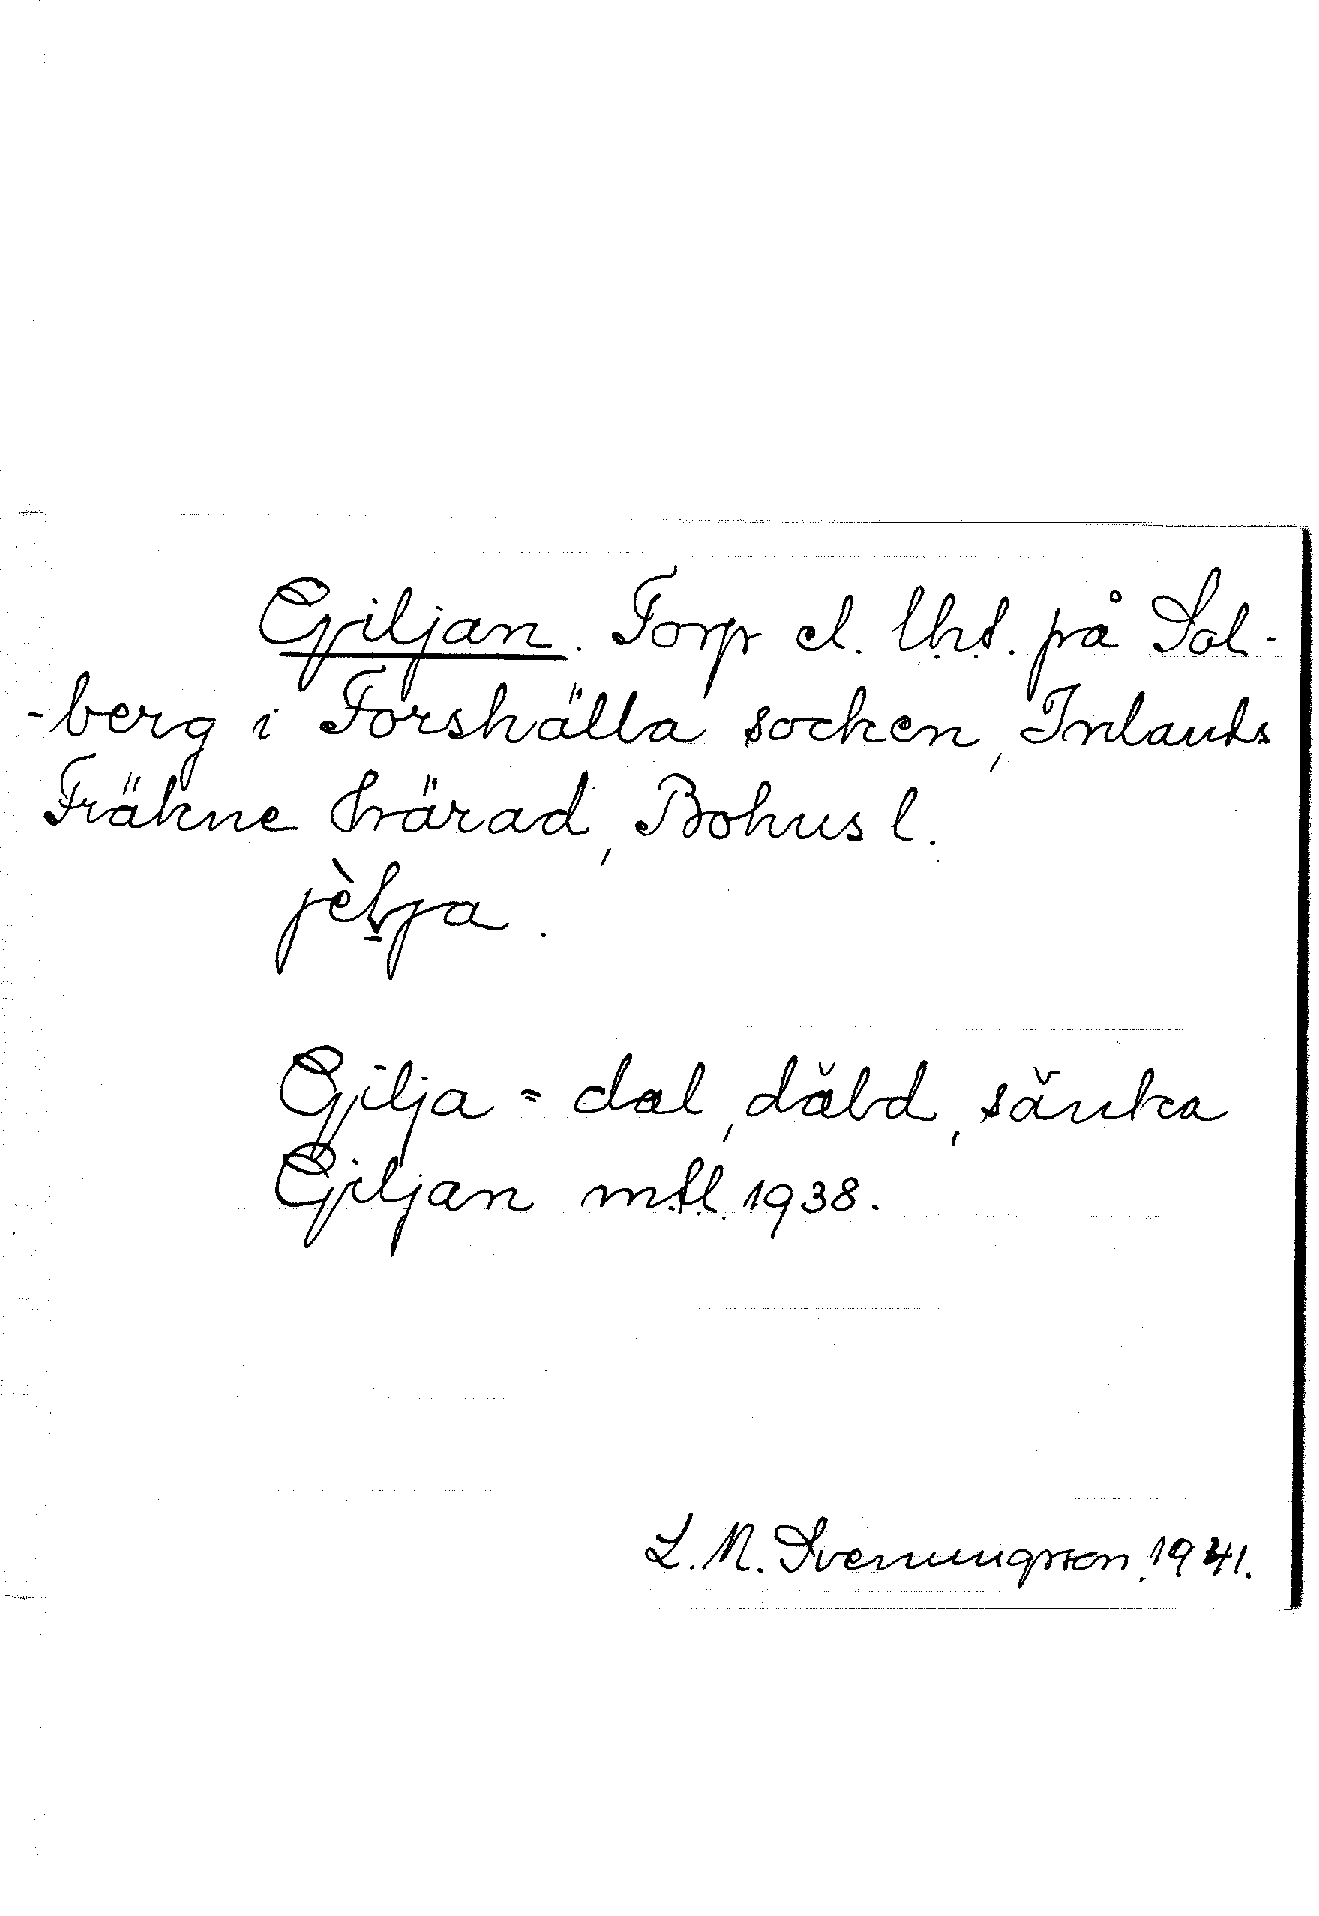 Giljan. Torp el. lht. på Sol-
-berg i Forshälla socken, Inlands
Fräkne härad, Bohusl.
jèlja.
Gilja = dal, däld, sänka
Giljan mtl. 1938.
L. M. Svenungsson 1941.